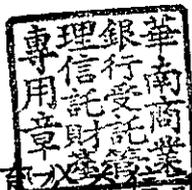 華南商業
銀行受託經
理信託財產
專用章